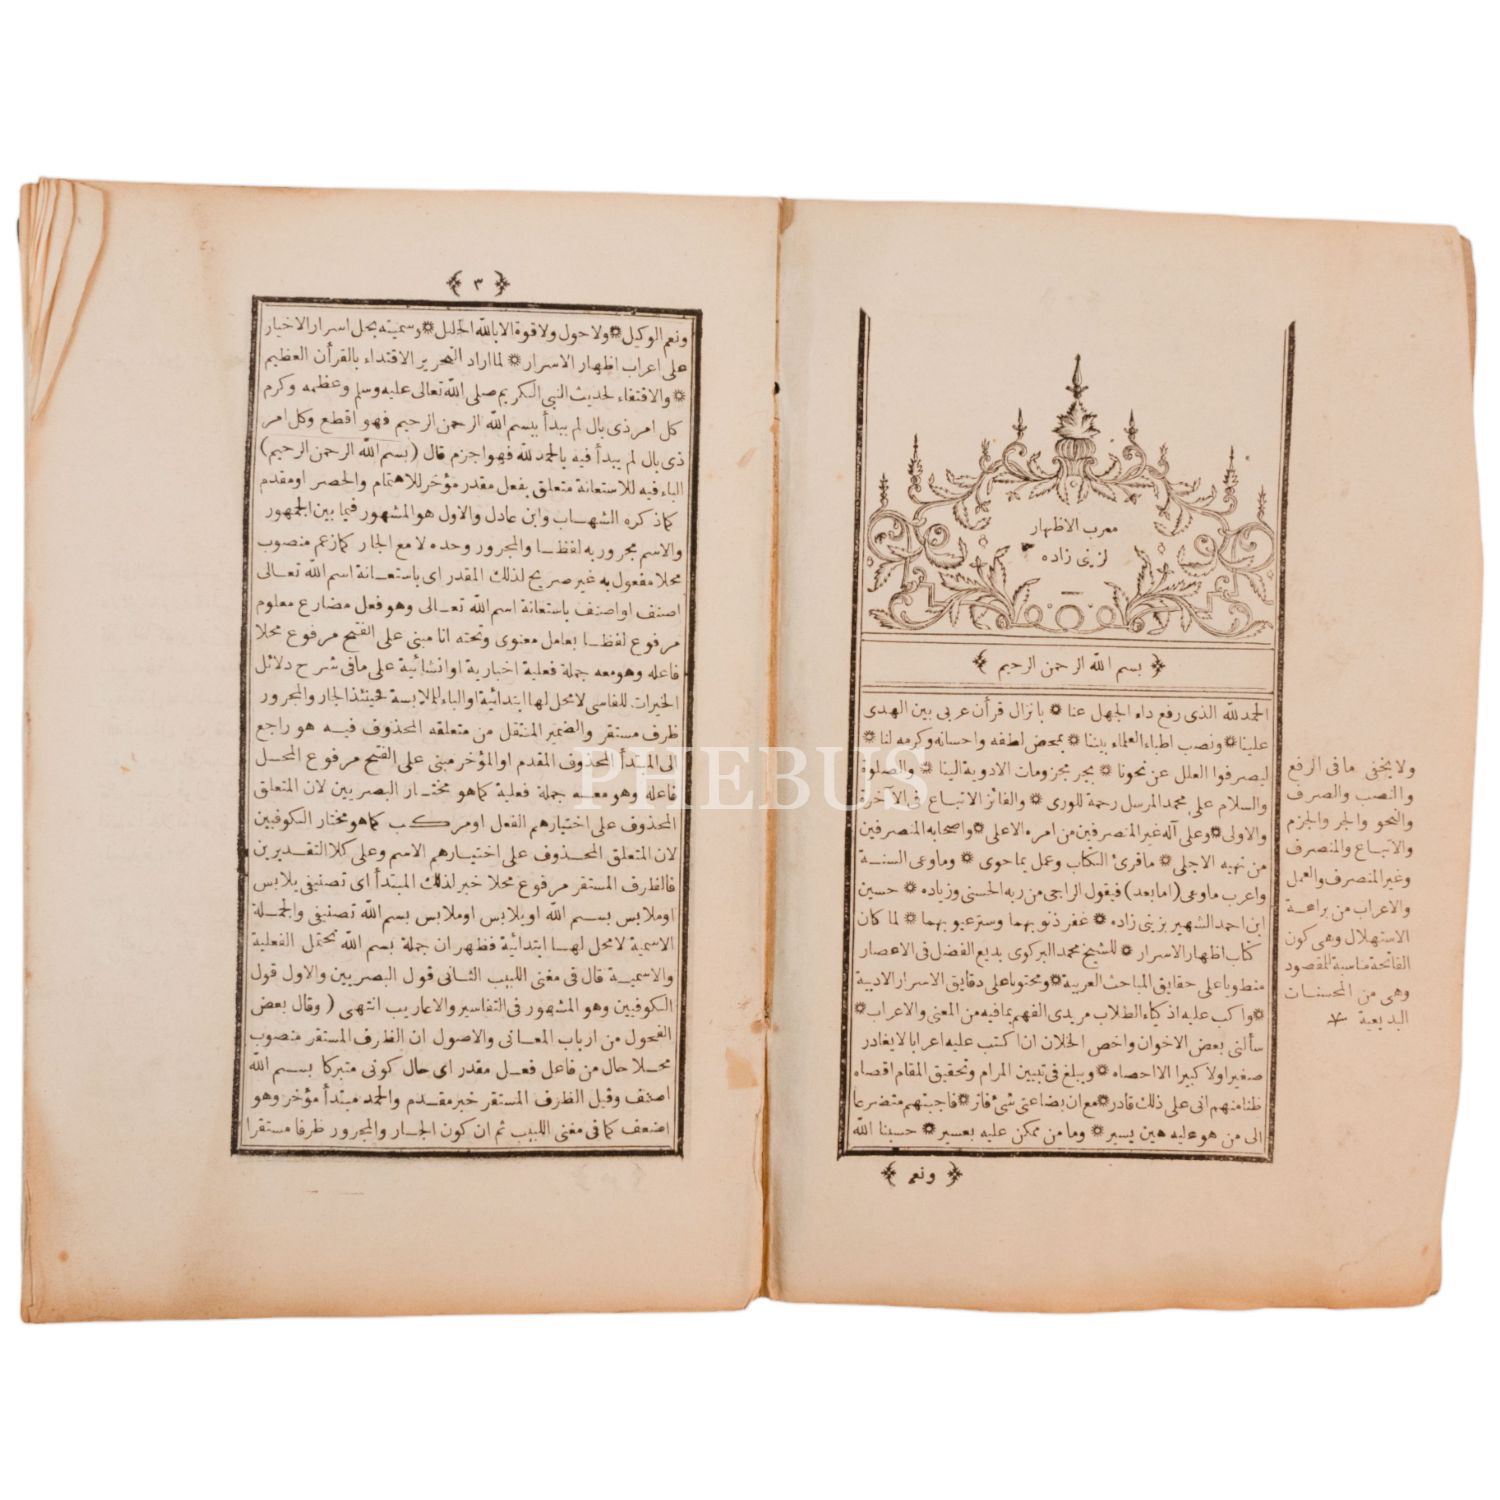 معرب الاظهار
لزينى زاده
﴿ بسم الله الرحمن الرحيم ﴾
الحمد لله الذى رفع داء الجهل عنا * بانزال قرأن عربى بين الهدى
علينا * ونصب اطباء العلماء بيننا * بمحض لطفه واحسانه وكرمه لنا *
ليصرفوا العلل عن نحونا * بجر مجزومات الادوية الينا * والصلوة
والسلام على محمد المرسل رحمة للورى * والفائز الاتباع فى الآخرة
والاولى * وعلى آله غير المنصرفين من امره الاعلى * واصحابه المنصرفين
من نهيه الاجلى * ماقرئ الكتاب وعمل بماحوى * وماوعى السنة
واعرب ماوعى (امابعد) فيقول الراجى من ربه الحسنى وزياده * حسين
ابن احمد الشهير بزينى زاده * غفر ذنوبهما وسترعيوبهما * لما كان
كتاب اظهار الاسرار * للشيخ محمد البركوى بديع الفضل فى الاعصار
منطويا على حقايق المباحث العربية * ومحتويا على دقايق الاسرار الادبية
* واكب عليه اذكياء الطلاب مريدى الفهم بمافيه من المعنى والاعراب *
سألنى بعض الاخوان واخص الخلان ان اكتب عليه اعرابا لايغادر
صغيرا ولا كبيرا الا احصاه * ويبلغ فى تبيين المرام وتحقيق المقام اقصاه
ظنا منهم انى على ذلك قادر * مع ان بضاعتى شئ فاتر * فاجبتهم متضرعا
الى من هو عليه هين يسير * وما من ممكن عليه بعسير * حسبنا الله
﴿ ونعم ﴾
ولا يخفى مافى الرفع
والنصب والصرف
والنحو والجر والجزم
والاتباع والمنصرف
وغير المنصرف والعمل
والاعراب من براعة
الاستهلال وهى كون
الفاتحة مناسبة للمقصود
وهى من المحسنات
البديعية
﴿ ٣ ﴾
ونعم الوكيل * ولا حول ولا قوة الا بالله الجليل * وسميته بحل اسرار الاخيار
على اعراب اظهار الاسرار * لما اراد النحرير الاقتداء بالقرأن العظيم
* والاقتفاء لحديث النبى الكريم صلى الله تعالى عليه وسلم وعظمه وكرم
كل امر ذى بال لم يبدأ ببسم الله الرحمن الرحيم فهو اقطع وكل امر
ذى بال لم يبدأ فيه بالحمد لله فهو اجزم قال (بسم الله الرحمن الرحيم)
الباء فيه للاستعانة متعلق بفعل مقدر مؤخر للاهتمام والحصر اومقدم
كما ذكره الشهاب وابن عادل والاول هو المشهور فيما بين الجمهور
والاسم مجرور به لفظا والمجرور وحده لا مع الجار كما زعم منصوب
محلا مفعول به غير صريح لذلك المقدر اى باستعانة اسم الله تعالى
اصنف او اصنف باستعانة اسم الله تعالى وهو فعل مضارع معلوم
مرفوع لفظا بعامل معنوى وتحته انا مبنى على الفتح مرفوع محلا
فاعله وهو معه جملة فعلية اخبارية او انشائية على مافى شرح دلائل
الخيرات للفاسى لا محل لها ابتدائية او الباء للملابسة فحينئذ الجار والمجرور
ظرف مستقر والضمير المنتقل من متعلقه المحذوف فيه هو راجع
الى المبتدأ المحذوف المقدم او المؤخر مبنى على الفتح مرفوع المحل
فاعله وهو معه جملة فعلية كما هو مختار البصريين لان المتعلق
المحذوف على اختيارهم الفعل او مركب كما هو مختار الكوفيين
لان المتعلق المحذوف على اختيارهم الاسم وعلى كلا التقديرين
فالظرف المستقر مرفوع محلا خبر لذلك المبتدأ اى تصنيفى يلابس
او ملابس بسم الله او يلابس او ملابس بسم الله تصنيفى والجملة
الاسمية لا محل لها ابتدائية فظهر ان جملة بسم الله تحتمل الفعلية
والاسمية قال فى مغنى اللبيب الثانى قول البصريين والاول قول
الكوفيين وهو المشهور فى التفاسير والاعاريب انتهى ( وقال بعض
الفحول من ارباب المعانى والاصول ان الظرف المستقر منصوب
محلا حال من فاعل فعل مقدر اى حال كونى متبركا بسم الله
اصنف وقيل الظرف المستقر خبر مقدم والحمد مبتدأ مؤخر وهو
اضعف كما فى مغنى اللبيب ثم ان كون الجار والمجرور ظرفا مستقرا
PHEBUS